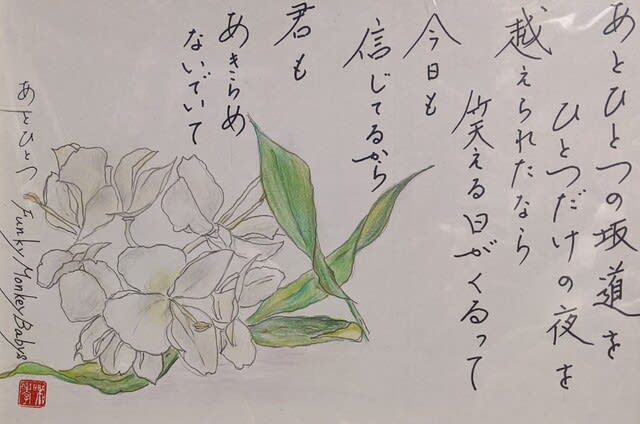 あとひとつの坂道を
ひとつだけの夜を
越えられたなら
笑える日がくるって
今日も
信じてるから
君も
あきらめ
ないでいて
あとひとつ
Funky Monkey Babys